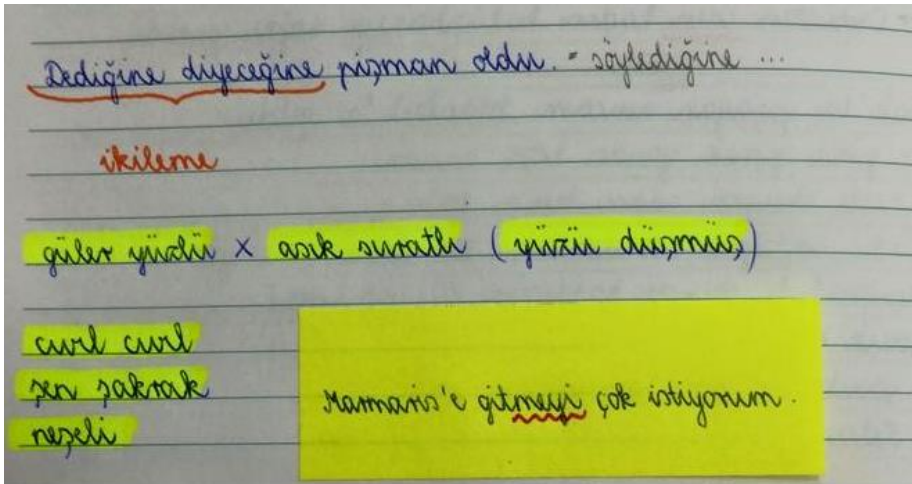 Dediğine diyeceğine pişman oldu. = söylediğine ...
ikileme
güler yüzlü x asık suratlı (yüzü düşmüş)
cıvıl cıvıl
şen şakrak
neşeli
Marmaris'e gitmeyi çok istiyorum.